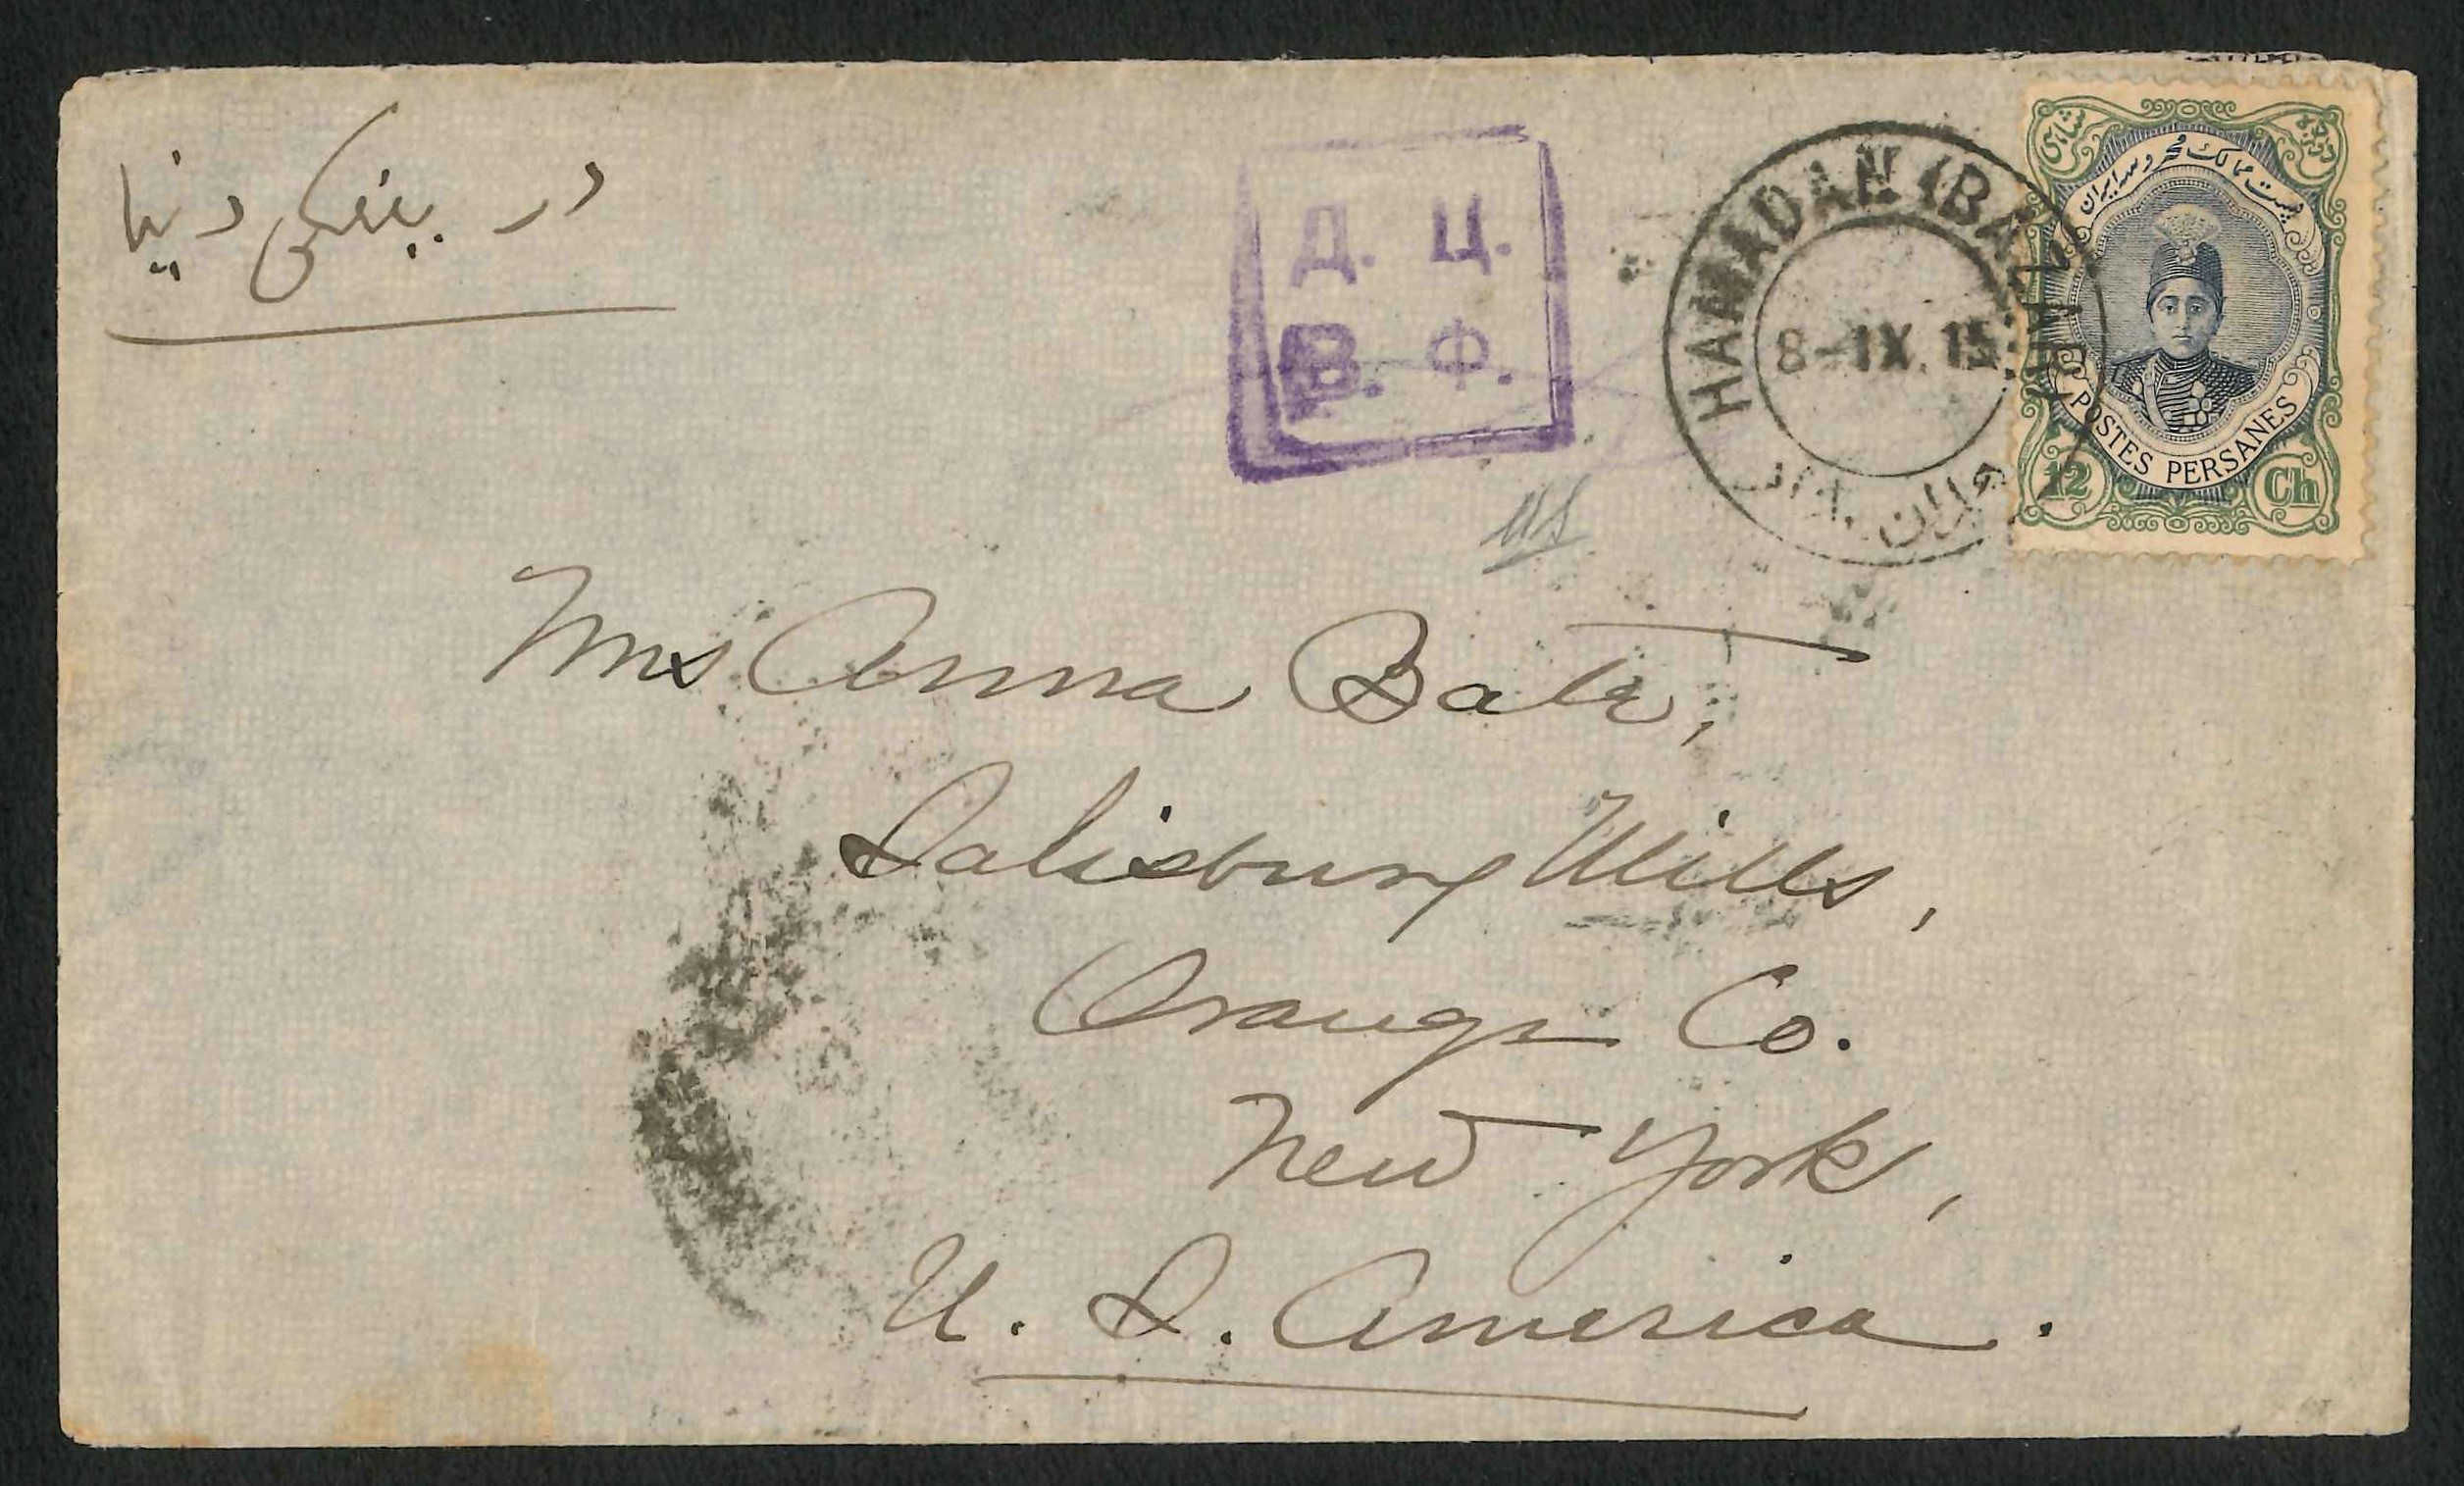 در ینگی دنیا
Д. Ц.
В. Ф.
HAMADAN (BAZAR)
8-IX.15
پست ممالک محروسه ایران
POSTES PERSANES
12 Ch
Mrs Anna Bate,
Salisbury Mills,
Orange Co.
New York,
U. S. America.